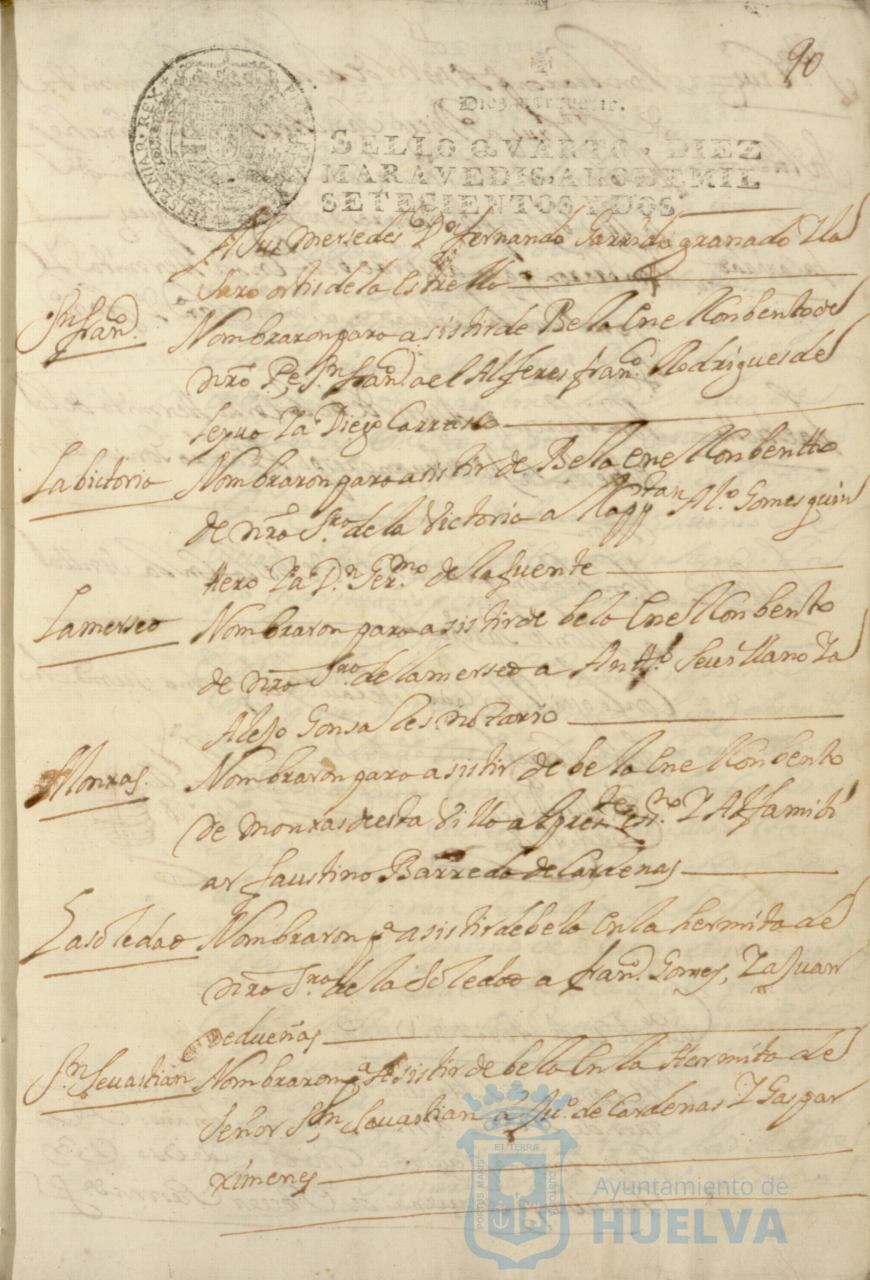 90
Diez maravedis.
SELLO QVARTO, DIEZ
MARAVEDIS, AÑO DE MIL
SETECIENTOS Y DOS
HISPANIAR. REX
A Sus mersedes Dn fernando Garrido granado Y la
saro ortis de la Estrella
Sn franco. Nombraron para asistir de Bela En el Conbento de
Nro Pe Sn franco a el Alferes franco. Rodrigues de
Y a Diego Carrasco
La bictoria Nombraron para asistir de Bela En el Conbentto
de nra Sra de la Victoria a Cappitan Alo. Gomes quin
tero Y a Dn Germo de la fuente
La mersed Nombraron para asistir de bela En el Conbento
de nra Sra de la mersed a Antto. Sevillano Y a
Alejo Gonsales notario
Monxas. Nombraron para asistir de bela En el Conbento
de monxas de esta Villa al press.te essno. Y Al famili
ar faustino Barredo de Cardenas
La soledad Nombraron pa asistir de bela En la hermita de
nra Sra de la Soledad a franco. Gomes, Y a Juan
Sn Sevastian Nombraron pa asistir de bela En la Hermita de
Señor Sn Sevastian a Juo. de Cardenas Y Gaspar
ximenes
PORTUS MARIS ET TERRÆ CUSTODIA
Ayuntamiento de
HUELVA